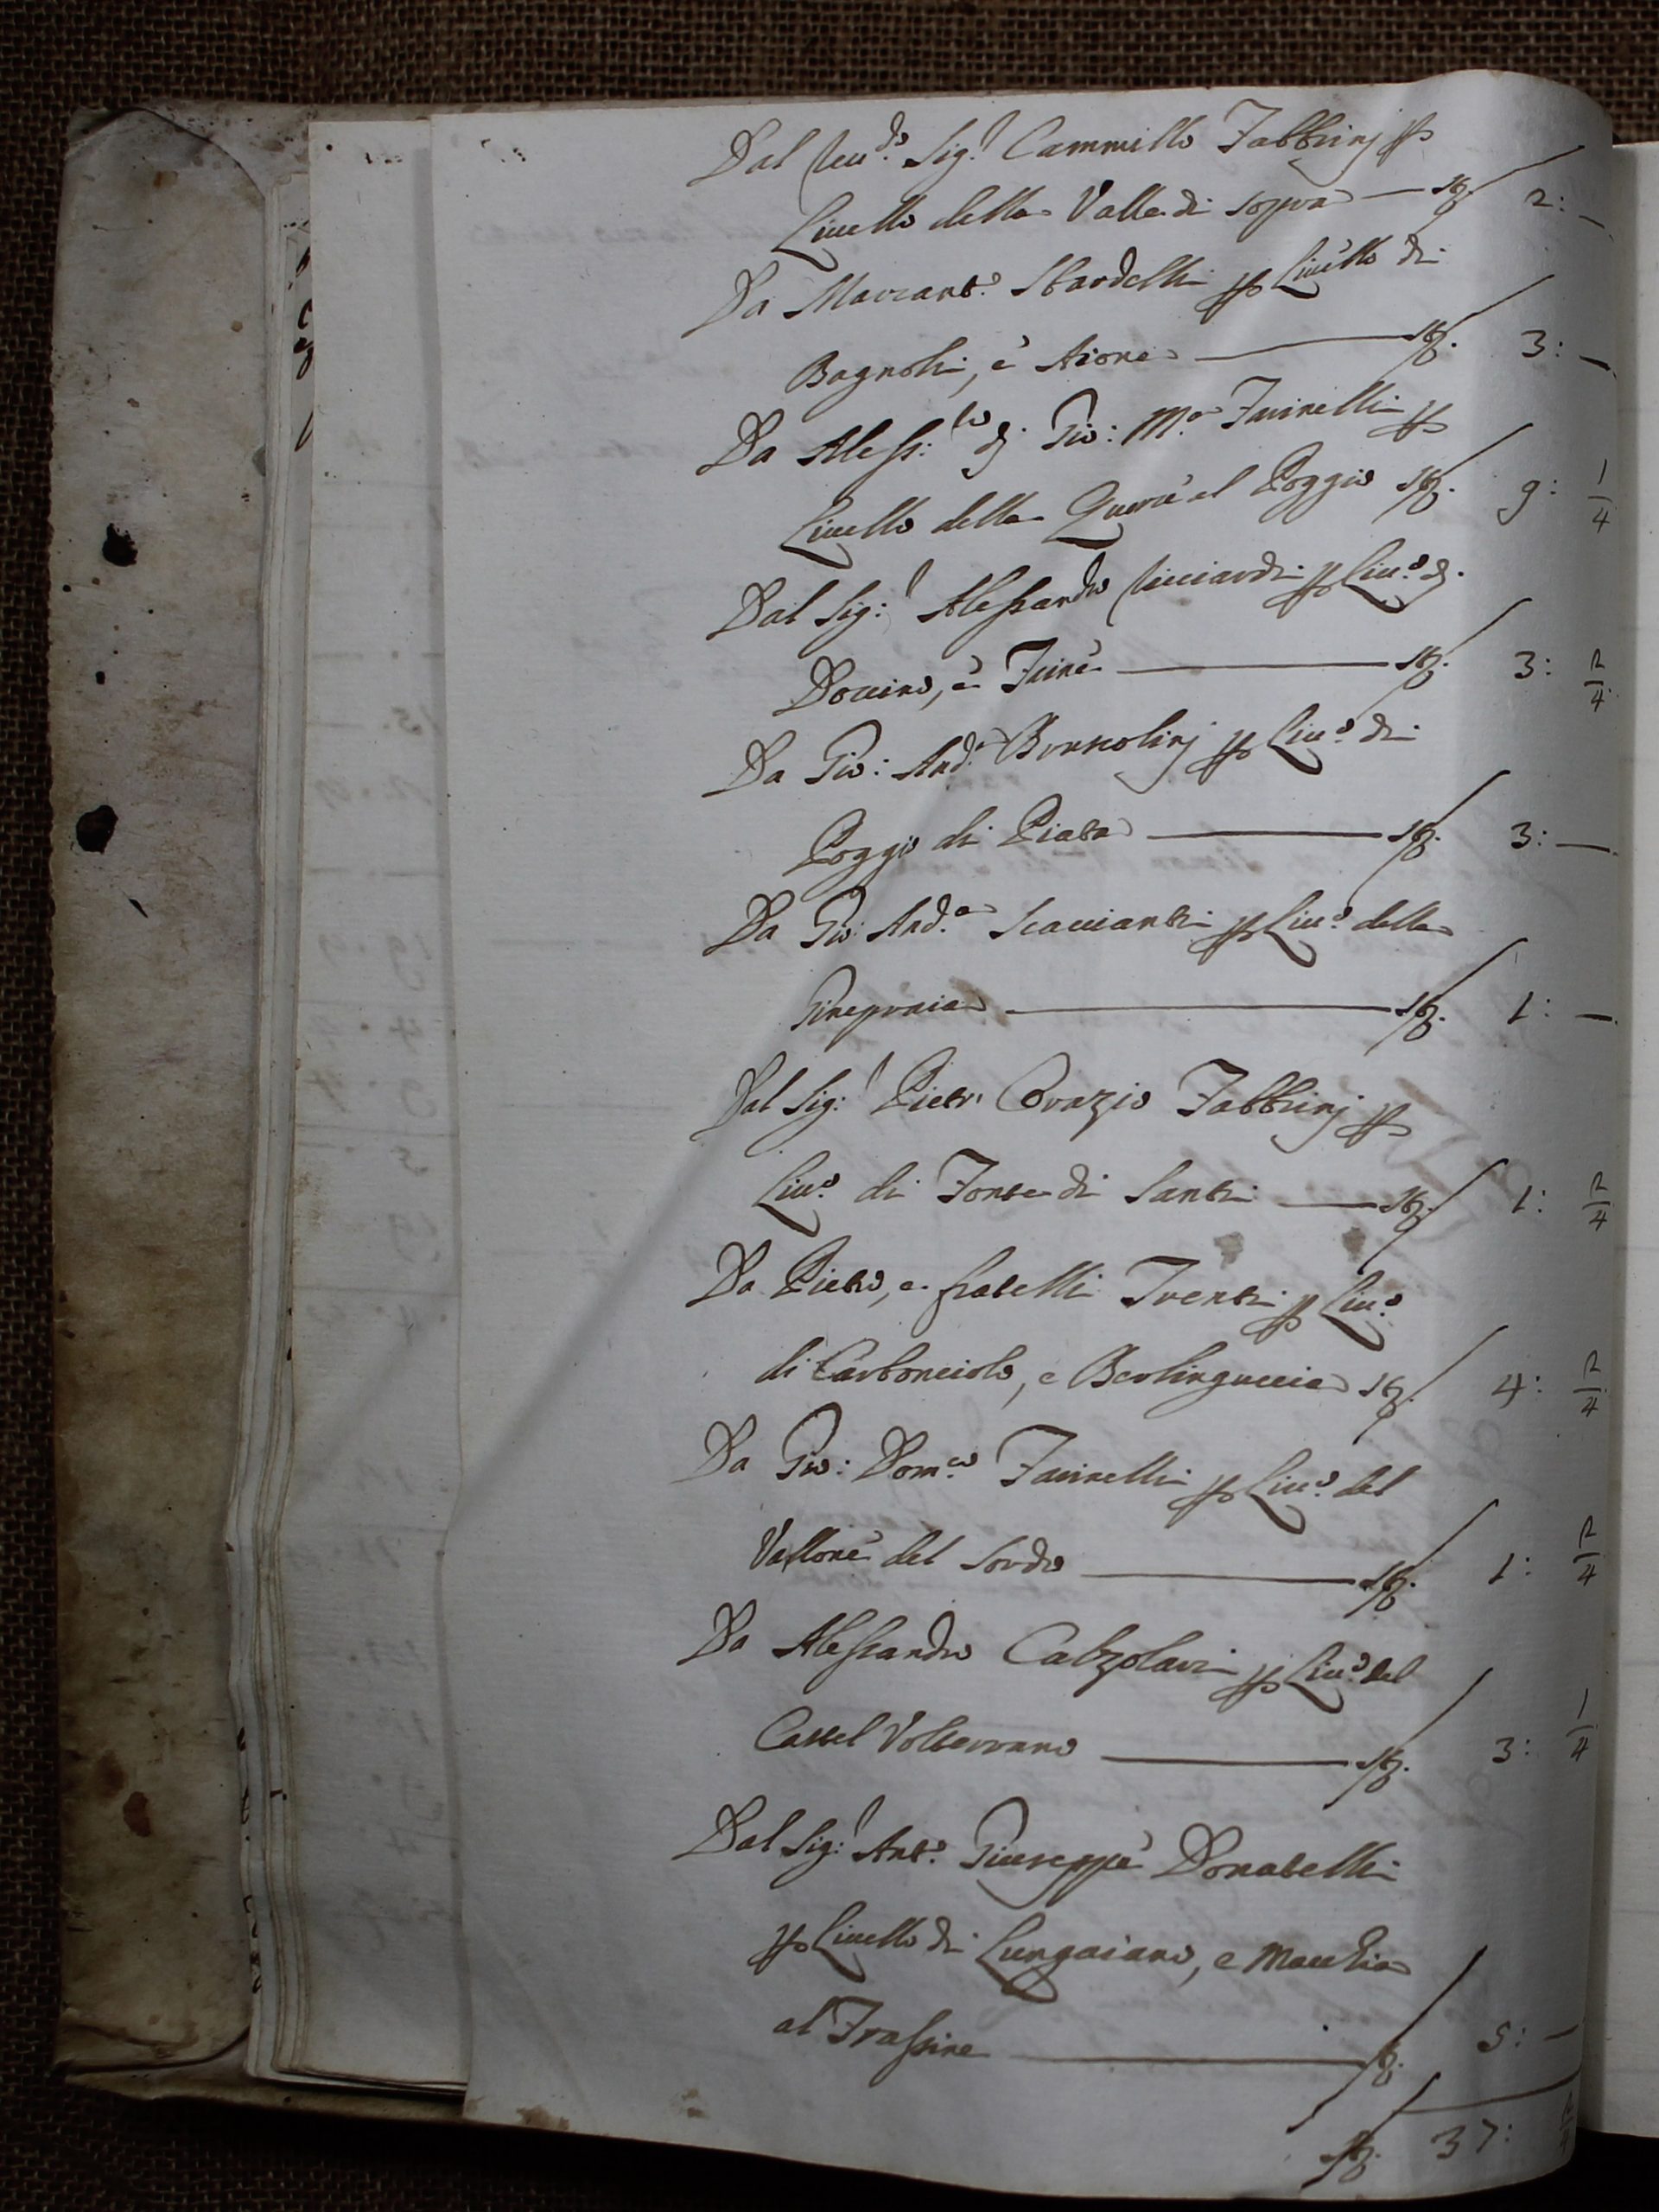 Dal Reu.do Sig.r Cammillo Fabbrinj p
Liuello della Valle di sopra — st. 2: —
Da Marcant.o Sbardelli p Liuello di
Bagnoli, è Aione — st. 3: —
Da Aless.dro di Gio: M.a Farinelli p
Liuello della Querce al Poggio st. 9: 1/4
Dal Sig.r Alessandro Ricciardi p Liu.o di
Doccino, è — st. 3: 2/4
Da Gio: And.a p Liu.o di
Poggio di Piata — st. 3: —
Da Gio: And.a Scaccianti p Liu.o della
Ginepraia — st. 1: —
Dal Sig.r Pietr' Orazio Fabbrinj p
Liu.o di Fonte di Santi — st. 1: 2/4
Da Pietro, e fratelli Trenti p Liu.o
di Carbonciolo, e Berlinguccia st. 4: 2/4
Da Gio: Dom.co Farinelli p Liu.o del
Vallone del Sordo — st. 1: 2/4
Da Alessandro Calzolari p Liu.o del
Castel Volterrano — st. 3: 1/4
Dal Sig.r Ant.o Giuseppe Donatelli
p Liuello di Lungaiano, e Macchia
al Frassine — st. 5: —
st. 37: